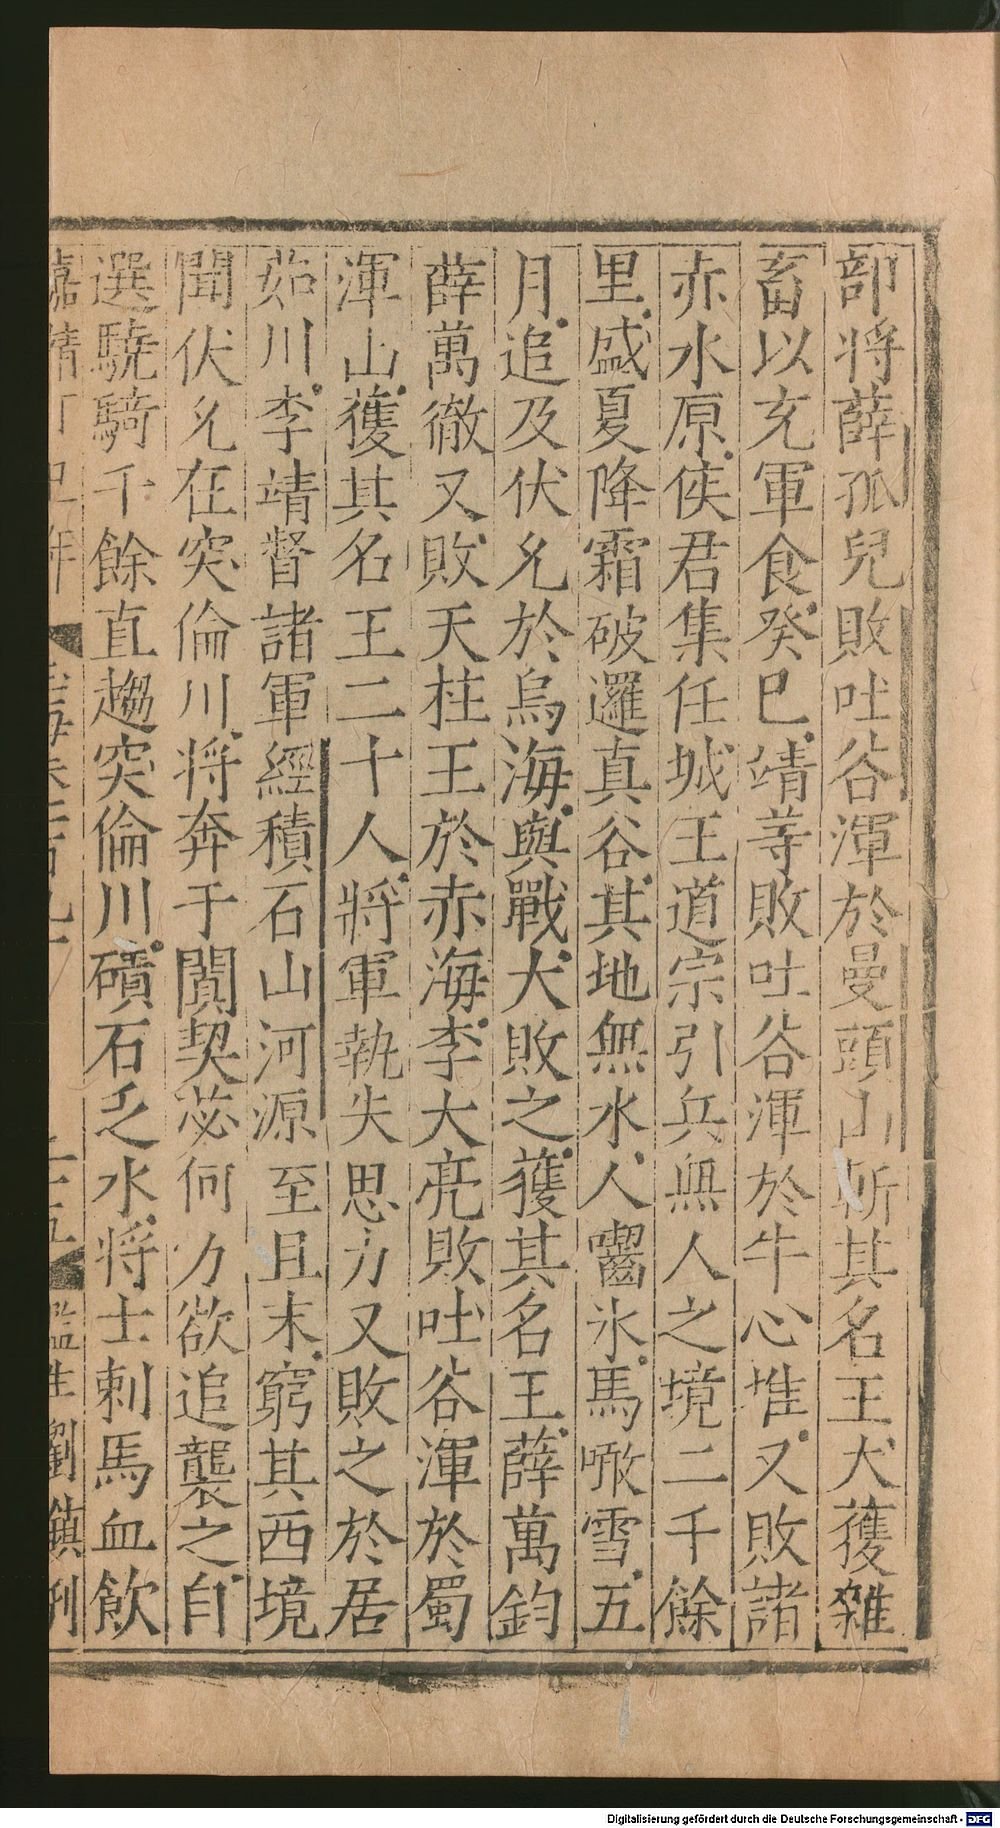 部将薛孤兒敗吐谷渾於曼頭山斬其名王大獲雜
畜以充軍食癸巳靖等敗吐谷渾於牛心堆又敗諸
赤水原侯君集任城王道宗引兵無人之境二千餘
里盛夏降霜破邏真谷其地無水人齧氷馬噉雪五
月追及伏允於烏海與戰大敗之獲其名王薛萬鈞
薛萬徹又敗天柱王於赤海李大亮敗吐谷渾於蜀
渾山獲其名王二十人將軍執失思力又敗之於居
茹川李靖督諸軍經積石山河源至且末窮其西境
聞伏允在突倫川将奔于闐契苾何力欲追襲之自
選驍騎千餘直趨突倫川磧石乏水将士刺馬血飲
嘉靖丁巳年
二十五
監生劉鎮刊
Digitalisierung gefördert durch die Deutsche Forschungsgemeinschaft - DFG